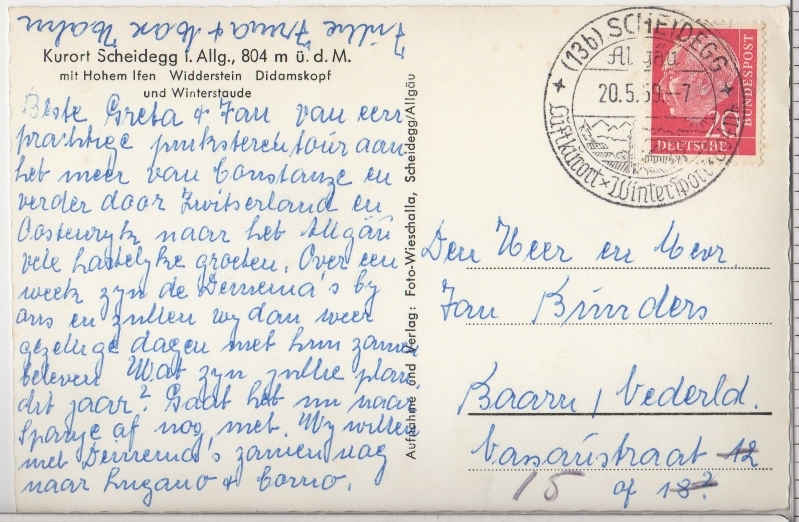 Kurort Scheidegg i. Allg., 804 m ü. d. M.
mit Hohem Ifen Widderstein Didamskopf
und Winterstaude
Beste Greta & Jan van een
prachtige pinkstertour aan
het meer van Constanze en
verder door Zwitserland en
Oostenryk naar het Allgäu
vele hartelyke groeten. Over een
week zyn de Demema's by
ons en zullen wy dan weer
gezellige dagen met hun zamen
beleven. Wat zyn jullie plan,
dit jaar? Gaat het nu naar
Spanje of nog niet. Wy willen
met Demema's zamen nag
naar Lugano & Como.
Jullie Irma & Max Hahn
Aufnahme und Verlag: Foto-Wieschalla, Scheidegg/Allgäu
(13b) SCHEIDEGG
Allgäu
20.5.59.-7
Luftkurort × Wintersport
20
DEUTSCHE
BUNDESPOST
Den Heer en Mevr.
Jan
Baarn / Nederld.
Nassaustraat 12
15 of 13?